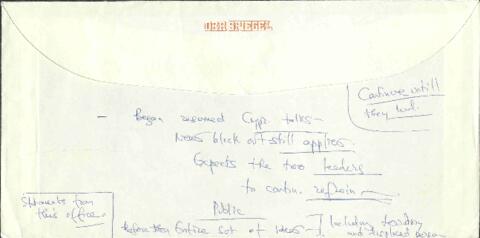 DER SPIEGEL
Continue untill
they end.
- Began resumed Cypr. talks -
News black out still applies.
Expects the two leaders
to contin. refrain
Statements from
this office.
Public
entire set of ideas
Including territory
and displaced person